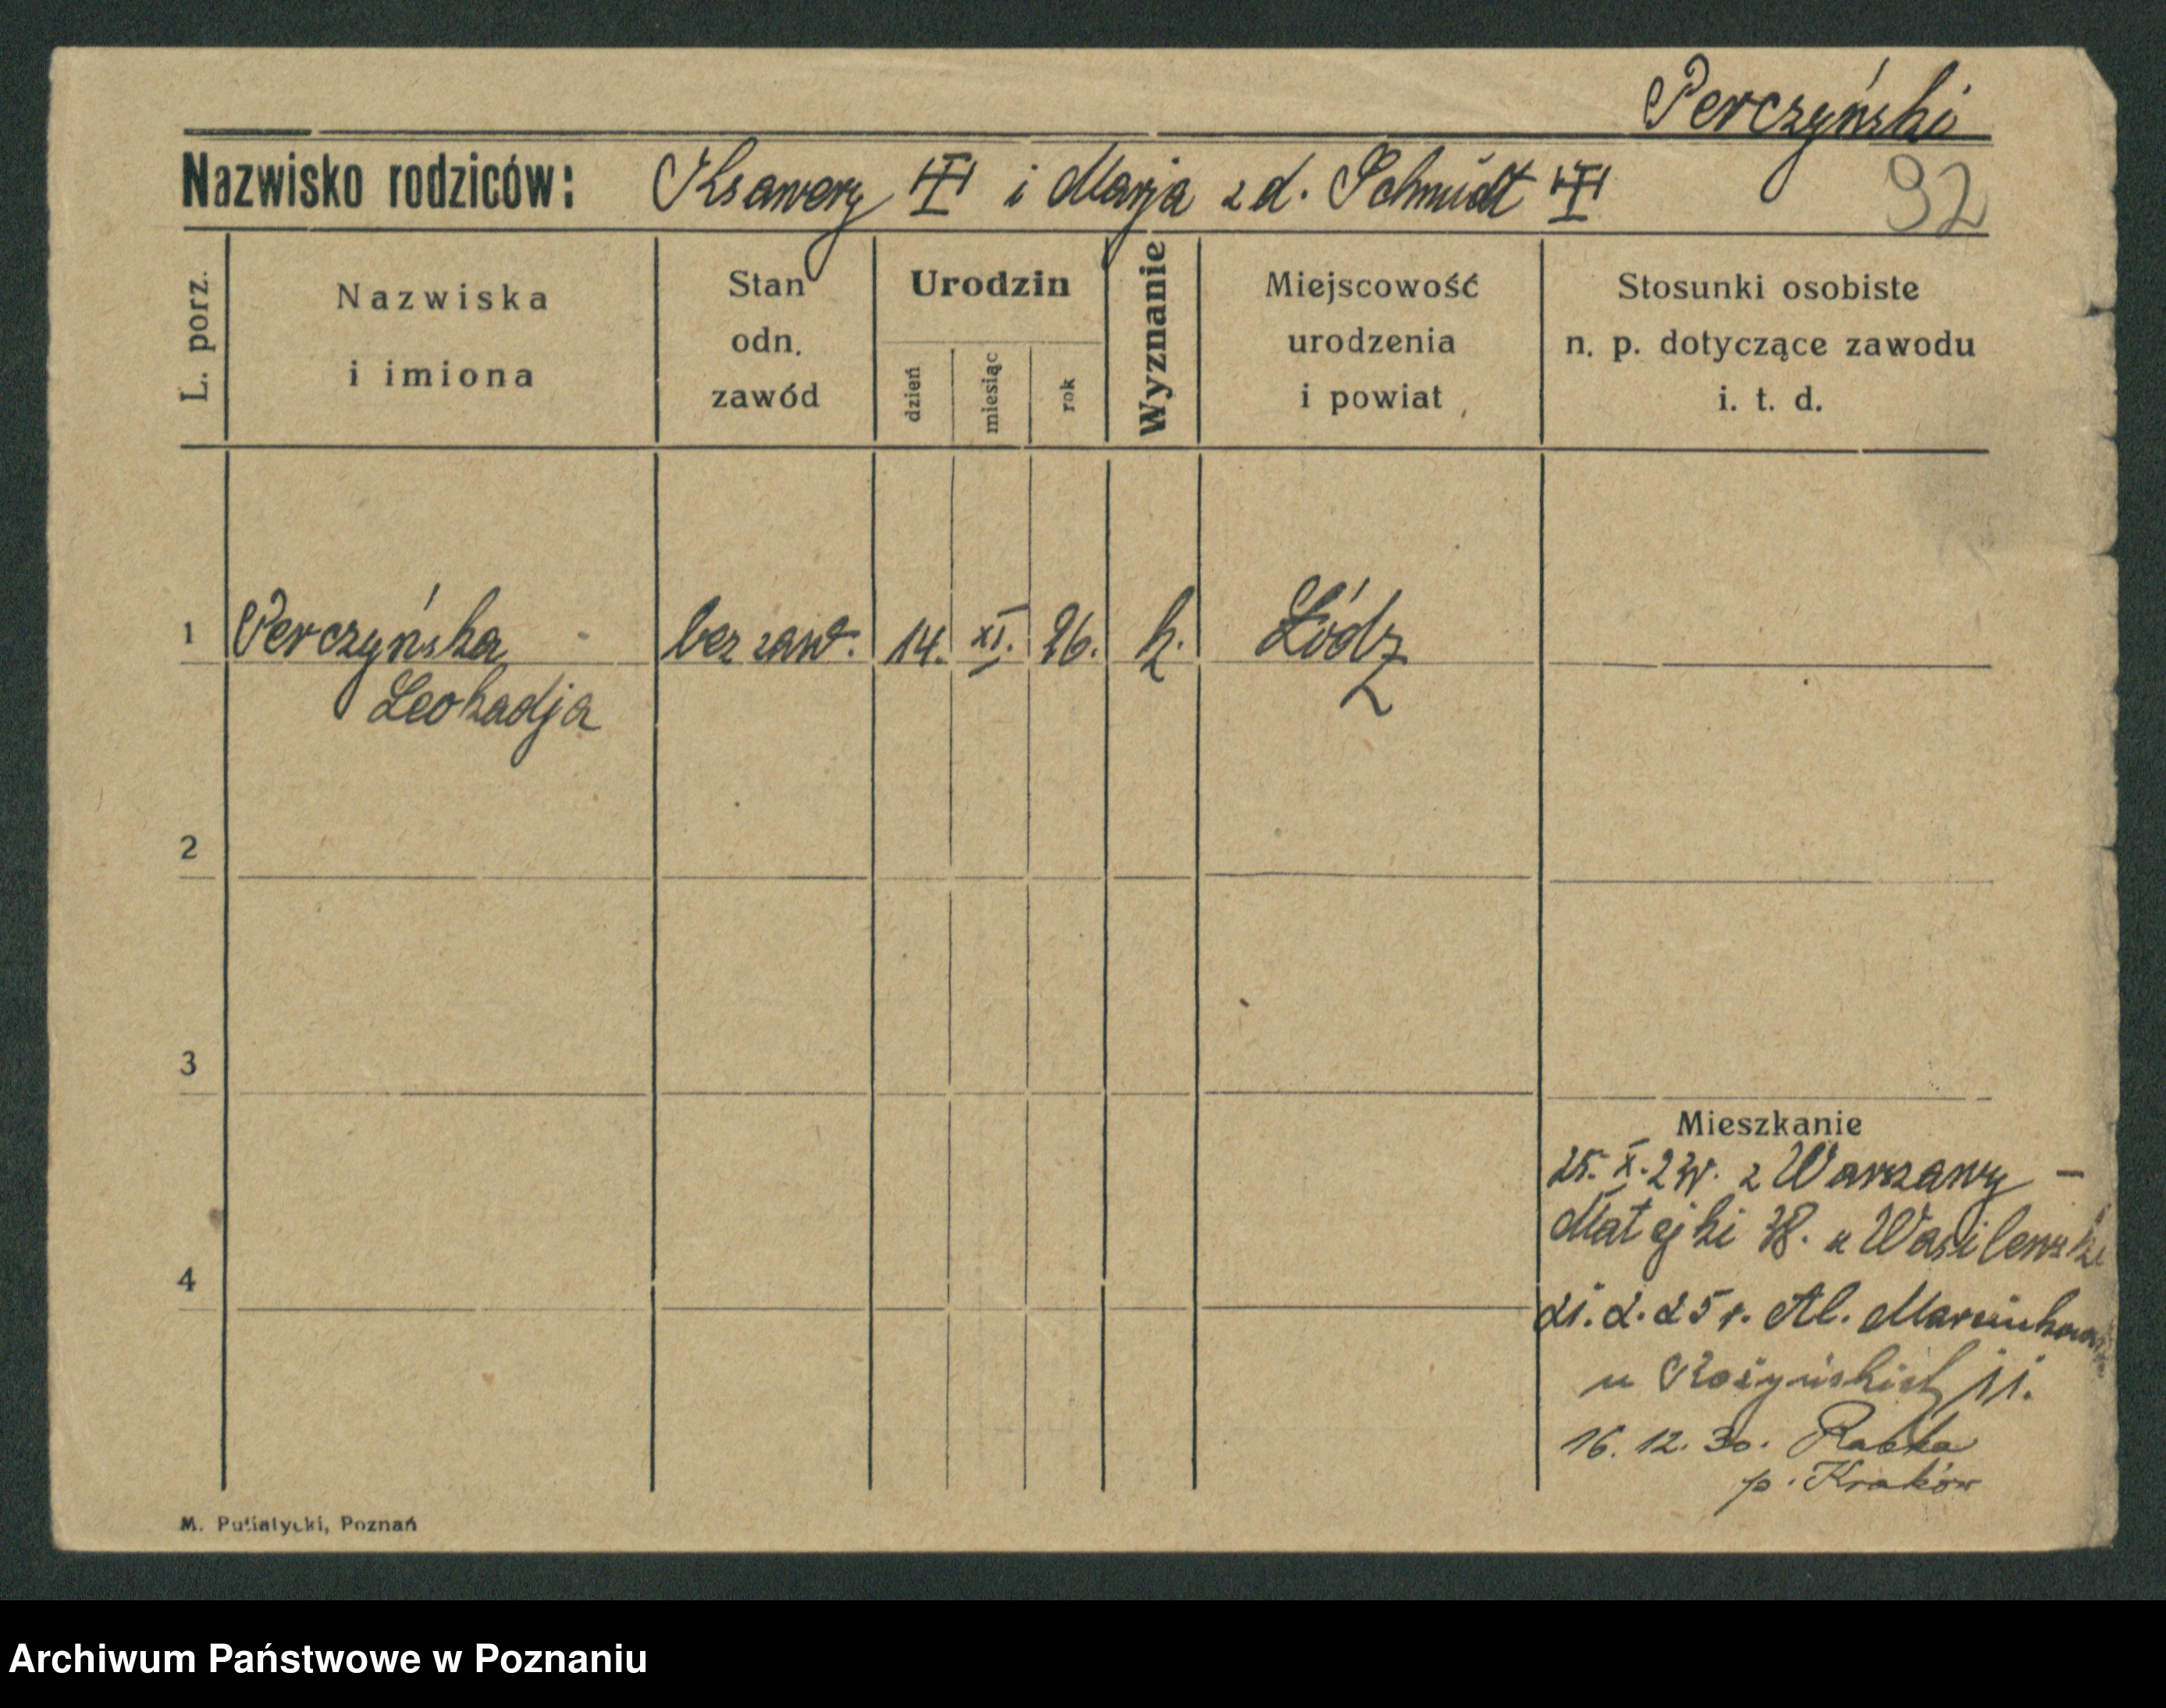 Perczyński
Nazwisko rodziców: Ksawery i Marja z d. Schmidt
92
L. porz.
Nazwiska
i imiona
Stan
odn.
zawód
Urodzin
dzień
miesiąc
rok
Wyznanie
Miejscowość
urodzenia
i powiat
Stosunki osobiste
n. p. dotyczące zawodu
i. t. d.
1 Perczyńska bez zaw. 14. XI. k. Łódz
Leokadja
2
3
4
Mieszkanie
25. X. z Warszawy –
Matejki u
2. 25 r. Al.
u 11.
16. 12. 30. Rabka
p. Kraków
M. Putiatycki, Poznań
Archiwum Państwowe w Poznaniu